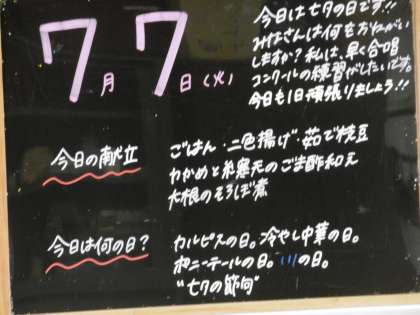 7月7日(火)
今日は七夕の日です!!
みなさんは何をおねがい
しますか?私は、早く合唱
コンクールの練習がしたいです。
今日も1日頑張りましょう!!
今日の献立
ごはん・二色揚げ・茹で枝豆
わかめと糸寒天のごま酢和え
大根のそろぼ煮
今日は何の日?
カルピスの日。冷やし中華の日。
ポニーテールの日。川の日。
"七夕の節句"